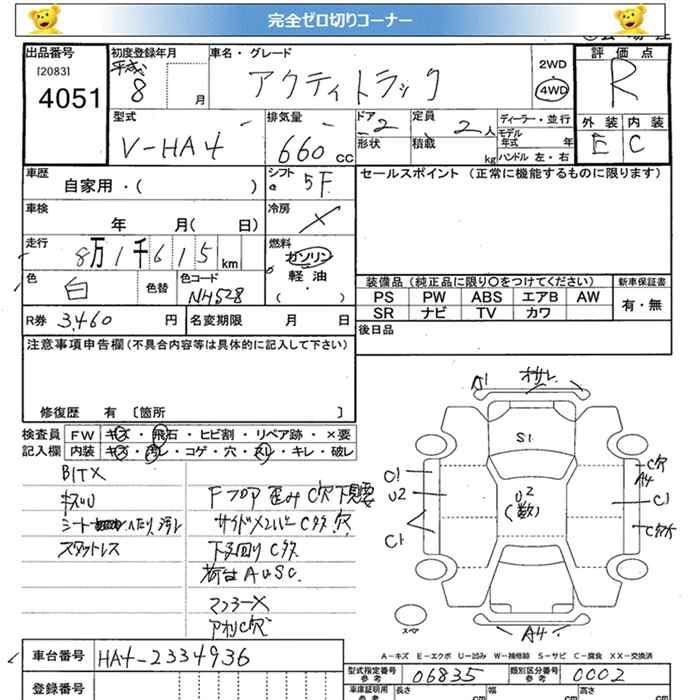 完全ゼロ切りコーナー
出品番号
[2083]
4051
初度登録年月
平成
8 月
車名・グレード
アクティトラック
2WD
4WD
評価点
R
外装 内装
E C
型式
V-HA4
排気量
660 cc
ドア
2
形状
定員
2人
積載
kg
ディーラー・並行
モデル
年式 年
ハンドル 左・右
車歴
自家用・( )
シフト
5F
セールスポイント (正常に機能するものに限ります)
車検
年 月( 日)
冷房
走行
8万1千615 km
燃料
ガソリン
・
軽油
( )
色
白
色替
色コード
NH528
装備品 (純正品に限り○をつけてください)
PS PW ABS エアB AW
SR ナビ TV カワ
新車保証書
有・無
R券 3,460 円
名変期限 月 日
後日品
注意事項申告欄(不具合内容等は具体的に記入して下さい)
修復歴 有 [箇所 ]
検査員
記入欄
FW キズ・飛石・ヒビ割・リペア跡・×要
内装 キズ・汚レ・コゲ・穴・スレ・キレ・破レ
キズU
シート ヘタリ 汚レ
スタットレス
Fフロア 歪み C穴 下見要
サイドメンバー C多 穴
下回り C多
荷台 AUSC
アオリC穴
A1
S1
U2
(数)
C1
U2
C1
C穴
A4
C1
A4
スペア
A-キズ E-エクボ U-凹み W-補修跡 S-サビ C-腐食 XX-交換済
車台番号
HA4-2334936
登録番号
型式指定番号
参考
06835
類別区分番号
参考
0002
車庫証明用
参考
長さ cm
幅 cm
高さ cm